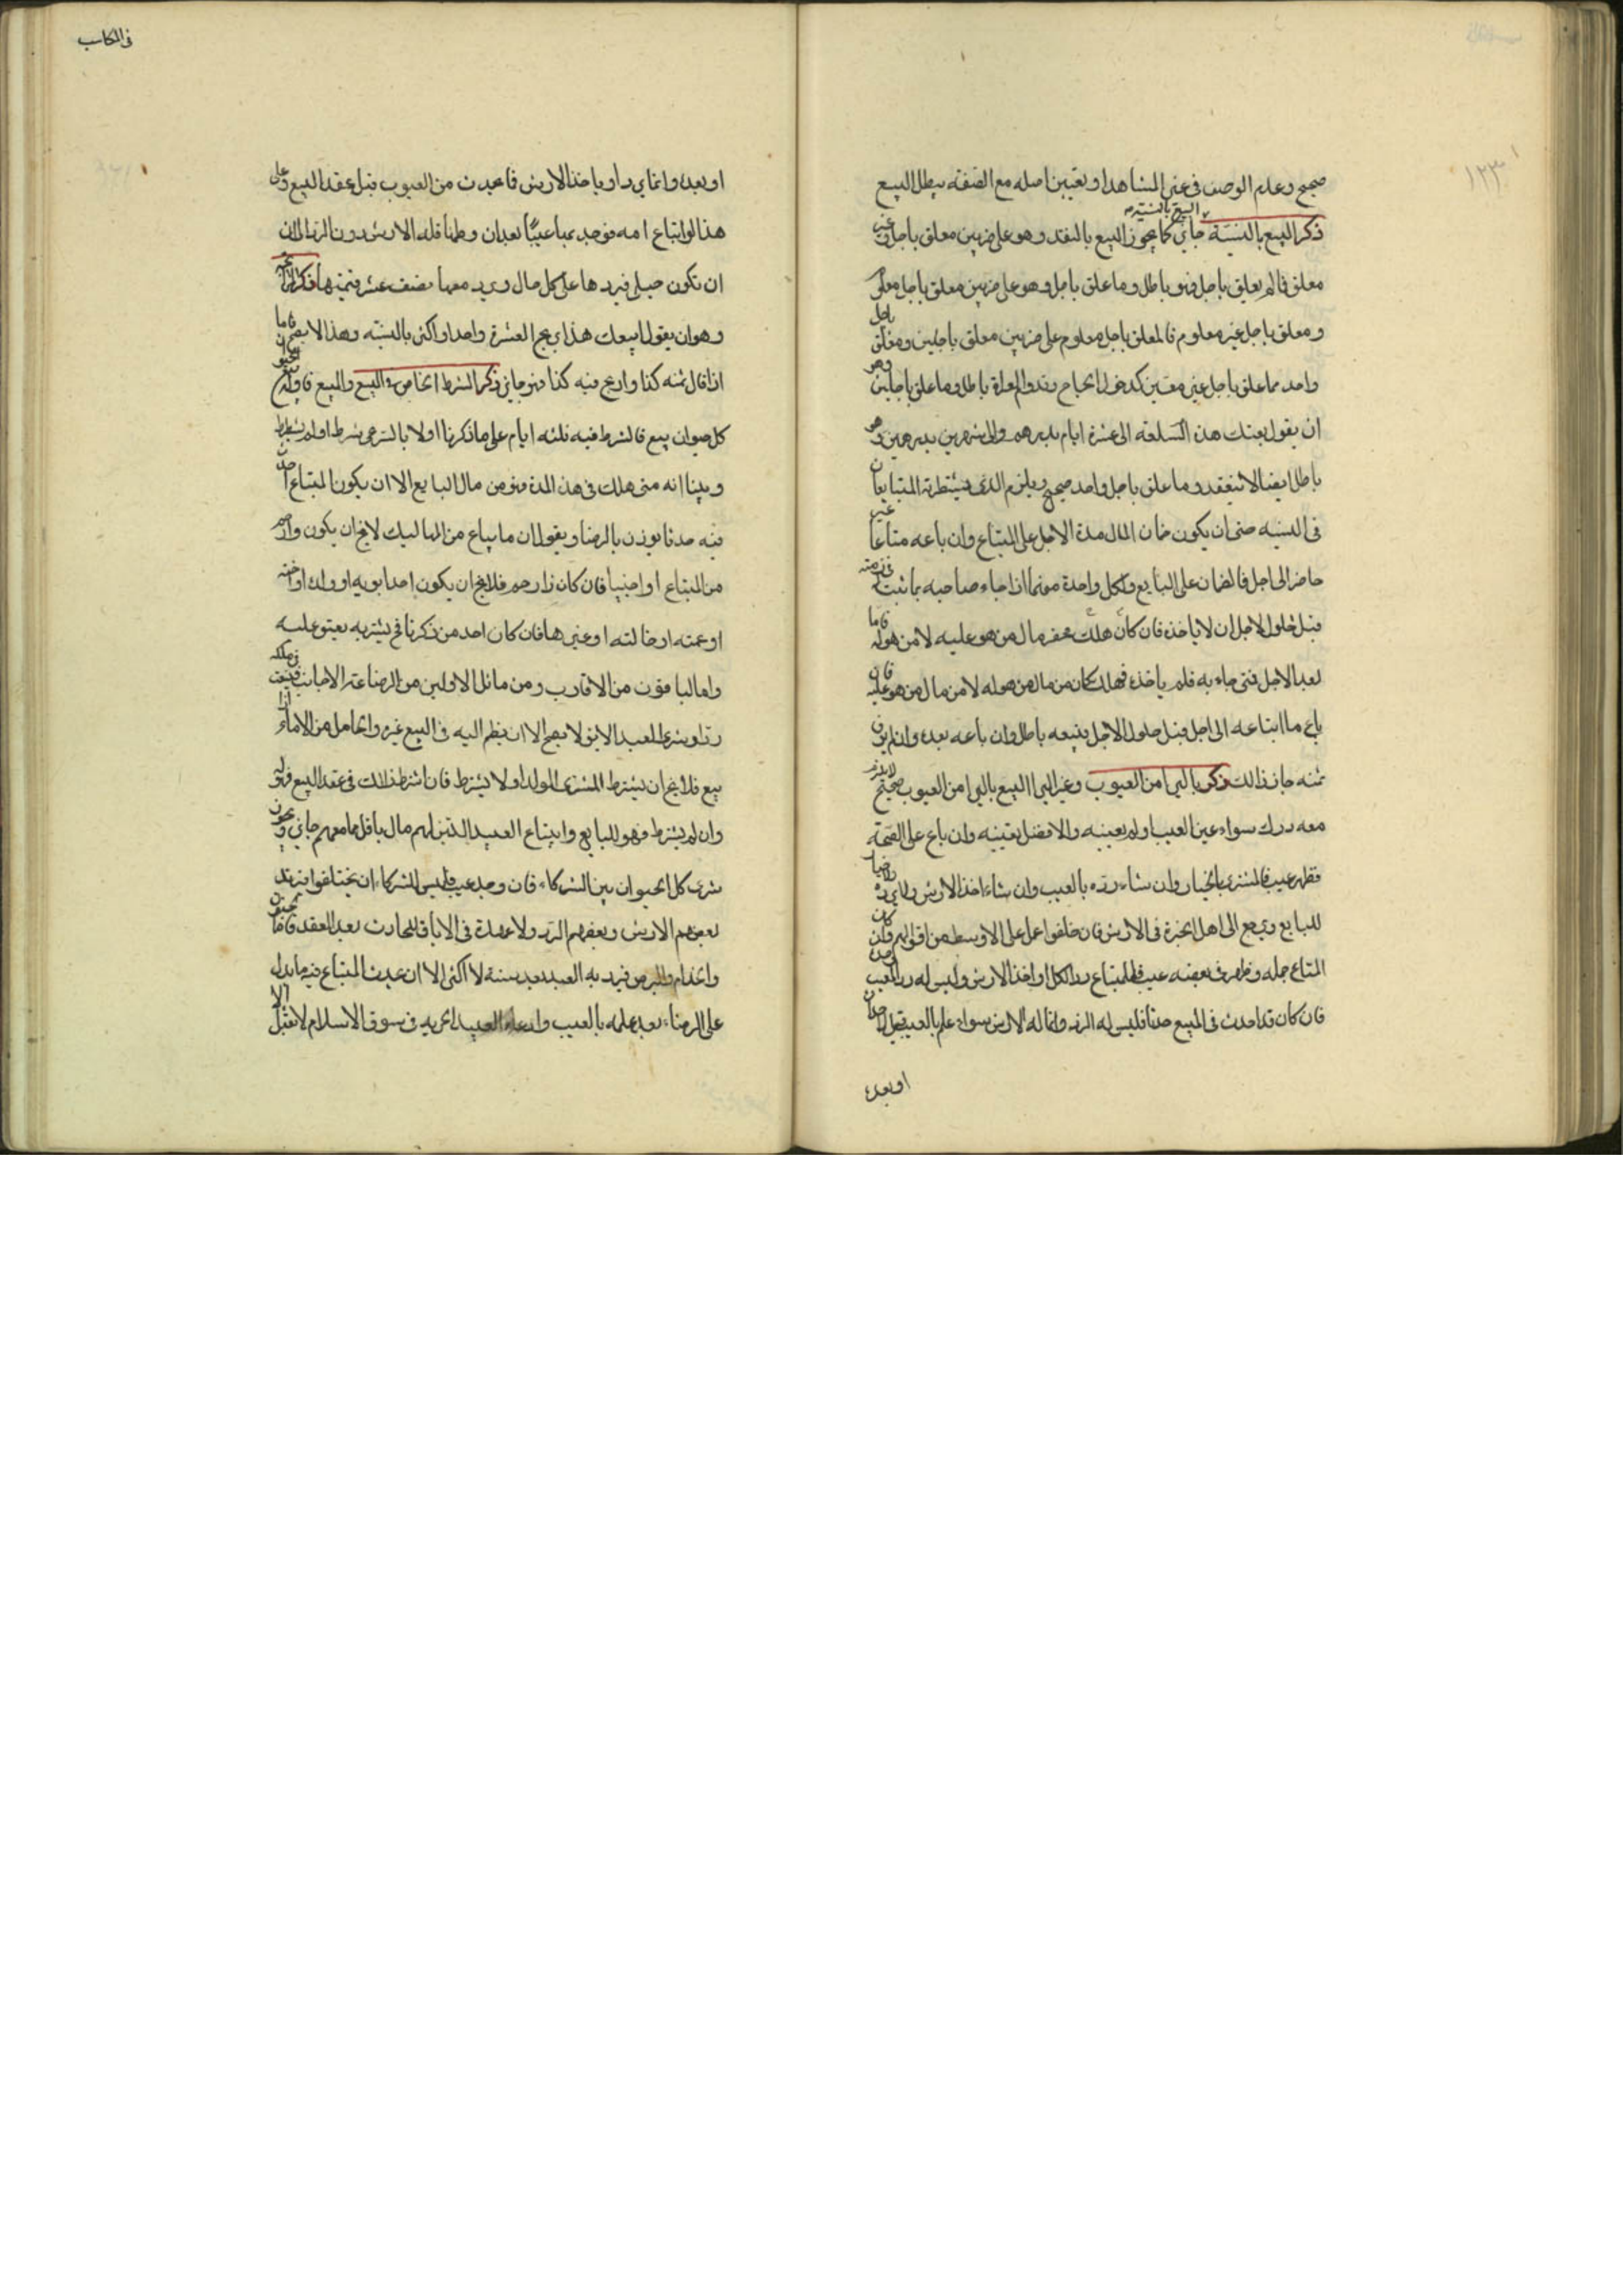 ١٢٣
صحيح وعدم الوصف في غير المشاهد او تعيين اصله مع الصفقه يبطل البيع
البيع بالنسيئة
ذكر البيع بالنسيّة جايز كما يجوز البيع بالنقد وهو على ضربين معلق باجل وغير
معلق فما لم يعلق باجل فهو باطل وما علق باجل وهو على ضربين معلق باجل معلوم
ومعلق باجل غير معلوم فالمعلق باجل معلوم على ضربين معلق باجلين ومعلق باجل
واحد مما علق باجل غير معين كدخول الحاج وقدوم الغزاة باطل وما علق باجلين وهو
ان يقول بعتك هذه السلعة الى عشرة ايام بدرهم والى شهرين بدرهمين وهو
باطل ايضا لا ينعقد وما علق باجل واحد صحيح ويلزم الذي يشترطه المتبايعان
في النسيه حتى ان يكون ضمان المال مدة الاجل على المبتاع وان باعه متاعا غير
حاضر الى اجل فالضمان على البايع ولكل واحدة منهما اذا جاء صاحبه بما ثبت في ذمته
قبل حلول الاجل ان لا ياخذه فان كان هلك فهو مال من هو عليه لا من هو له فاما
بعد الاجل فمتى جاء به فلم ياخذه فهلك كان من مال من هو له لا من مال من هو عليه فان
باع ما ابتاعه الى اجل قبل حلول الاجل فبيعه باطل وان باعه بعده وان لم يوف
ثمنه جاز ذالك ذكر بالبرا من العيوب وغير البرا البيع بالبرا من العيوب صحيح لا يلزم
معه درك سواء عين العيب او لم يعينه والافضل تعيينه وان باع على الصحة
فظهر عيب فالمشتري بالخيار وان شاء رده بالعيب وان شاء اخذ الارش ولا خيار
للبايع ويرجع الى اهل الخبرة في الارش فان خلفوا عمل على الاوسط من اقوالهم وان كان
المتاع جمله وظهر في بعضه عيب فللمبتاع رد الكل او اخذ الارش وليس له رد المعيب وحده
فان كان قد احدث في المبيع حدثا فليس له الرد وانما له الارش سواء علم بالعيب قبل احداث
او بعده
في المكاسب
او بعده وانما يرد او ياخذ الارش فما يحدث من العيوب قبل عقد البيع وعلى
هذا لو ابتاع امه فوجد بها عيبا بعد ان وطئها فله الارش دون الرد الا ان
ان تكون حبلى فيردها على كل حال ويرد معها نصف عشر قيمتها ذكر المرابحة
وهو ان يقول ابيعك هذا بربح العشرة واحد او اكثر بالنسيّه وهذا لا يصح فاما
اذا قال ثمنه كذا واربح فيه كذا فهو جايز ذكر الشرط الخاص في البيع والمبيع
كل حيوان بيع فالشرط فيه ثلثه ايام على ما ذكرنا اولا بالشرع شرط او لم يشترط
وبينا انه متى هلك في هذه المدة فهو من مال البايع الا ان يكون المبتاع احدث
فيه حدثا يوذن بالرضا ويقول ان ما يباع من المماليك لا يخ ان يكون
من المبتاع او اجنبيا فان كان ذا رحم فلا يخ ان يكون احد ابويه او ولده او اخته
او عمته او خالته او غيرها فان كان احد من ذكرنا فح يشتريه يعتق عليه
واما الباقون من الاقارب ومن ماثل الاولين من الرضاعة الاجانب في ملكه
وشرى العبد الابق لا يصح الا ان يضم اليه في البيع غيره والحامل من الاماء اذا
بيع فلا يخ ان يشترط المشتري الولد او لا يشترط فان اشترط ذالك في عقد البيع فهو له
وان لم يشترط فهو للبايع وابتياع العبيد الذين لهم مال باقل مما معهم جايز ويجوز
شرى كل الحيوان بين الشركاء فان وجد عيب فليس للشركاء ان يختلفوا فيريد
بعضهم الارش وبعضهم الرد ولا عهدة في الاباق الحادث بعد العقد فاما الجنون
والجذام والبرص فيرد به العبد بعد سنة لا اكثر الا ان يحدث المبتاع فيه ما يدل
على الرضاء بعد علمه بالعيب وادعاء العبيد الحريه في سوق الاسلام لا تقبل الا